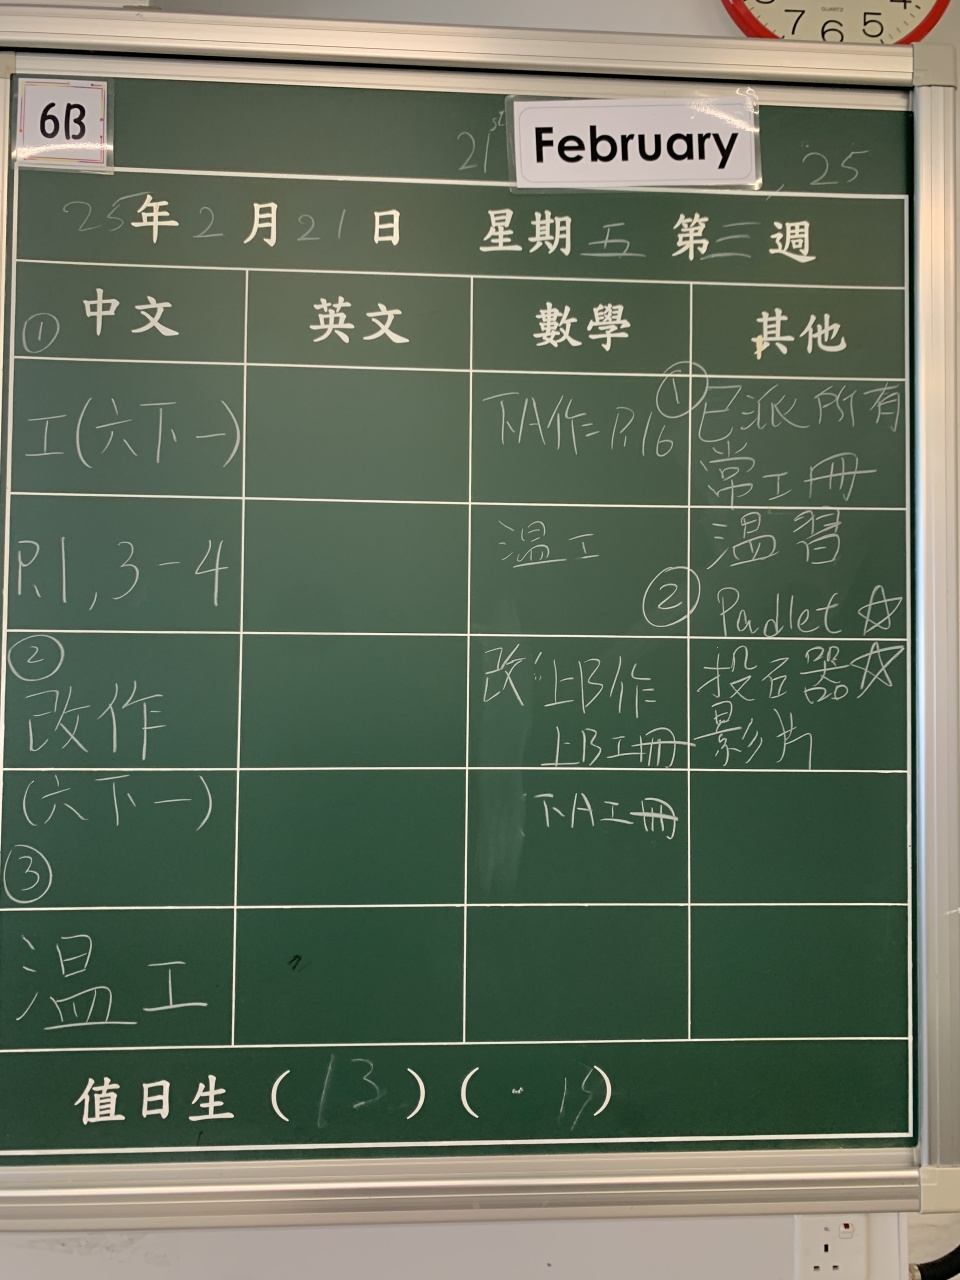 7 6 5
6B
21st February, 25
25年2月21日 星期五 第三週
中文 英文 數學 其他
①
工(六下一)
P.1, 3-4
②
改作
(六下一)
③
溫工
下A作 P.16
溫工
改:上B作
上B工冊
下A工冊
① 已派所有
常工冊
溫習
② Padlet ☆
投石器☆
影片
值日生 (13) ( )